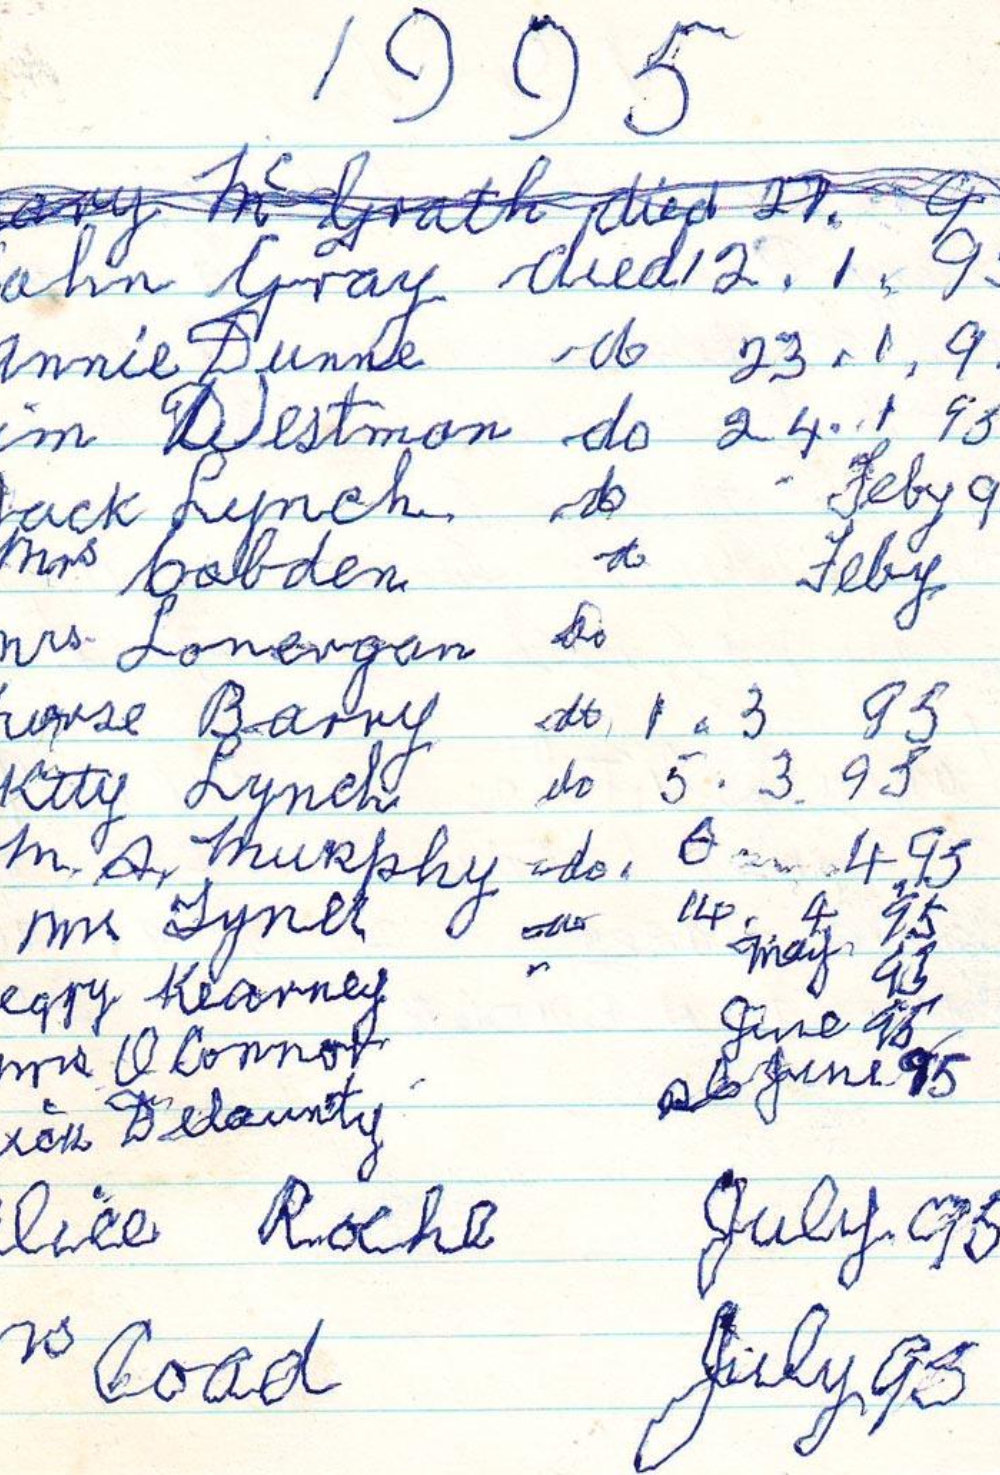 1995
ary McGrath died 27. 9
ohn Gray died 12.1.95
nnie Dunne do 23.1.9
im Westman do 24.1 95
Jack Lynch do Feby 9
Mrs Cobden do Feby
mrs. Lonergan do
urse Barry do 1.3 95
Kitty Lynch do 5.3.95
M. A. Murphy do. 6 4.95
Mrs Tynel do 14. 4 95
eggy Kearney " May 95
mrs O Connor June 95
Delaunty do June 95
lice Roche July.95
rs Coad July 95